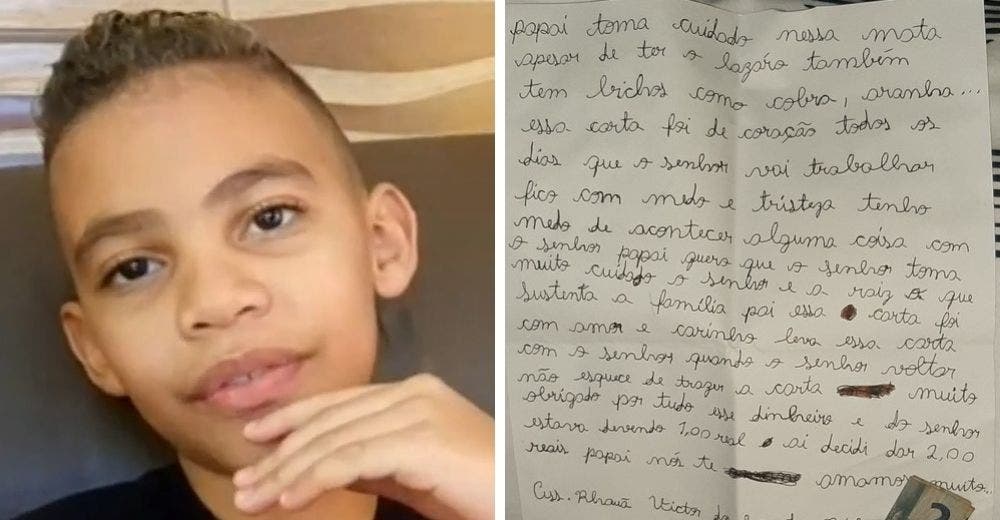 papai toma cuidado nessa mata
apesar de ter o lazáro também
tem bichos como cobra, aranha...
essa carta foi de coração todos os
dias que o senhor vai trabalhar
fico com medo e tristeza tenho
medo de acontecer alguma coisa com
o senhor papai quero que o senhor toma
muito cuidado o senhor e a raiz que
sustenta a família pai essa carta foi
com amor e carinho leva essa carta
com o senhor quando o senhor voltar
não esquece de trazer a carta muito
obrigado por tudo esse dinheiro e do senhor
estava devendo 1,00 real ai decidi dar 2,00
reais papai nós te amamos muito...
Ass. Rhauã Victor
2